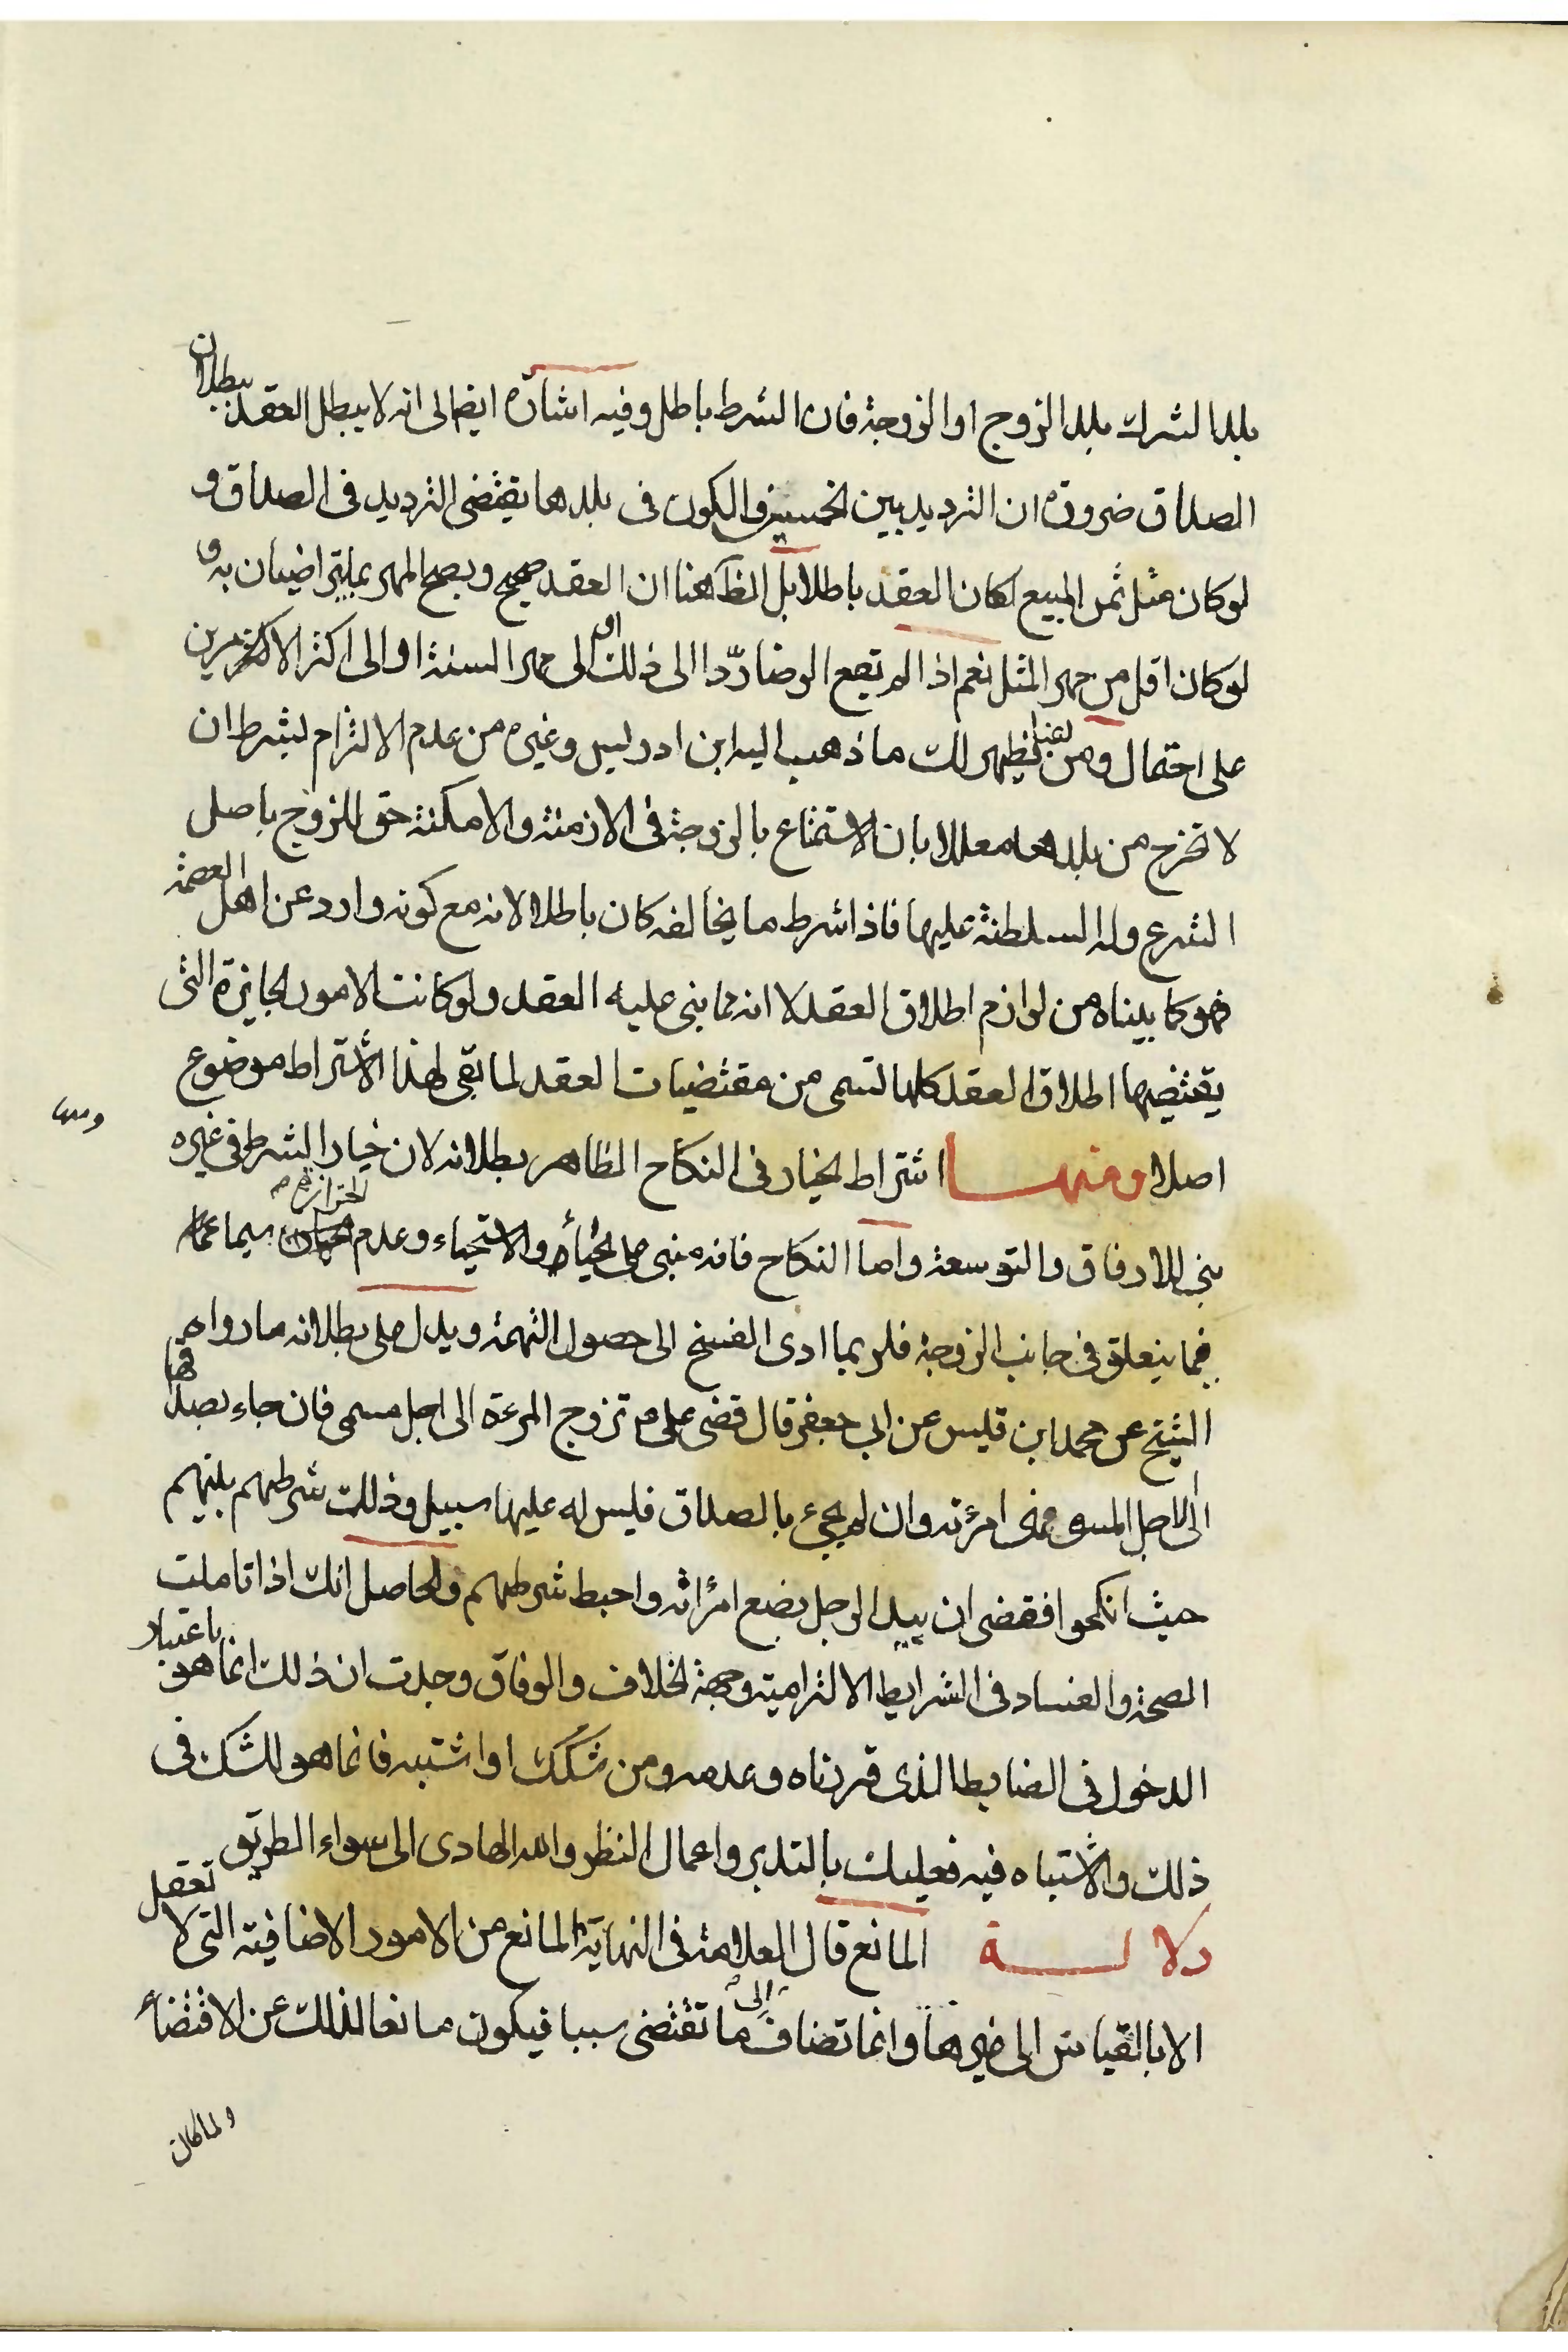 بلد الشرك بلد الزوج او الزوجة فان الشرط باطل وفيه اشارة ايضا الى انه لا يبطل العقد ببطلان
الصداق ضرورة ان الترديد بين الخمسين والكون فى بلدها يقتضى الترديد فى الصداق و
لو كان مثل ثمن المبيع لكان العقد باطلا بل الظ هنا ان العقد صحيح ويصح المهر بما يتراضيان به و
لو كان اقل من مهر المثل نعم اذا لم تقع الرضا ردّا الى ذلك او الى مهر السنة او الى اكثر الاكثرمرين
على احتمال ومن هنا يظهر لك ما ذهب اليه ابن ادريس وغيره من عدم الالتزام بشرط ان
لا تخرج من بلدها معللا بان الاستمتاع بالزوجة فى الازمنة والامكنة حق للزوج باصل
الشرع وله السلطنة عليها فاذا شرط ما يخالفه كان باطلا لانه مع كونه وارد عن اهل العصمة
فهو كما بيناه من لوازم اطلاق العقد لا انه مما بنى عليه العقد ولو كانت الامور الجايزة التى
يقتضيها اطلاق العقد كلها تسمى من مقتضيات العقد لما بقى لهذا الاشتراط موضوع
اصلا ومنها اشتراط الخيار فى النكاح الظاهر بطلانه لان خيار الشرط فى غيره
بنى للارفاق والتوسعة واما النكاح فانه مبنى على الحياء والاستحياء وعدم سيما
فيما يتعلق فى جانب الزوجة فلربما ادى الفسخ الى حصول التهمة ويدل على بطلانه ما رواه
الشيخ عن محمد ابن قيس عن ابى جعفر قال قضى على م تزوج المرءة الى اجل مسمى فان جاء بصداقها
الى الاجل المسمى فهى امرئته وان لم يجىء بالصداق فليس له عليها سبيل وذلك شرطهم بينهم
حيث انكحوا فقضى ان بيد الرجل بضع امرأته واحبط شرطهم والحاصل انك اذا تاملت
الصحة والفساد فى الشرايط الالتزامية وجهة الخلاف والوفاق وجدت ان ذلك انما هو باعتبار
الدخول فى الضابط الذى قررناه وعدمه ومن شكك او اشتبه فانما هو للشك فى
ذلك والاشتباه فيه فعليك بالتدبر واعمال النظر والله الهادى الى سواء الطريق
دلالة المانع قال العلامة فى النهاية المانع من الامور الاضافية التى لا تعقل
الا بالقياس الى غيرها وانما تضاف الى ما تقتضى سببا فيكون مانعا لذلك عن الاقتضاء
ولما كان